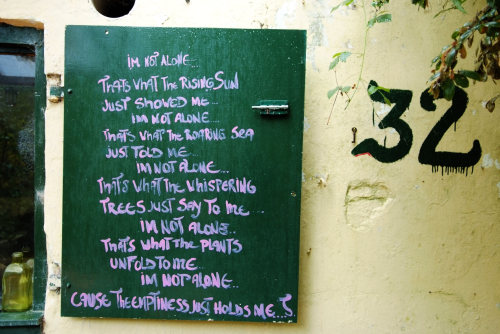 I'M NOT ALONE...
THAT'S WHAT THE RISING SUN
JUST SHOWED ME...
I'M NOT ALONE...
THAT'S WHAT THE ROARING SEA
JUST TOLD ME...
I'M NOT ALONE...
THAT'S WHAT THE WHISPERING
TREES JUST SAY TO ME...
I'M NOT ALONE...
THAT'S WHAT THE PLANTS
UNFOLD TO ME...
I'M NOT ALONE...
CAUSE THE EMPTINESS JUST HOLDS ME...
32